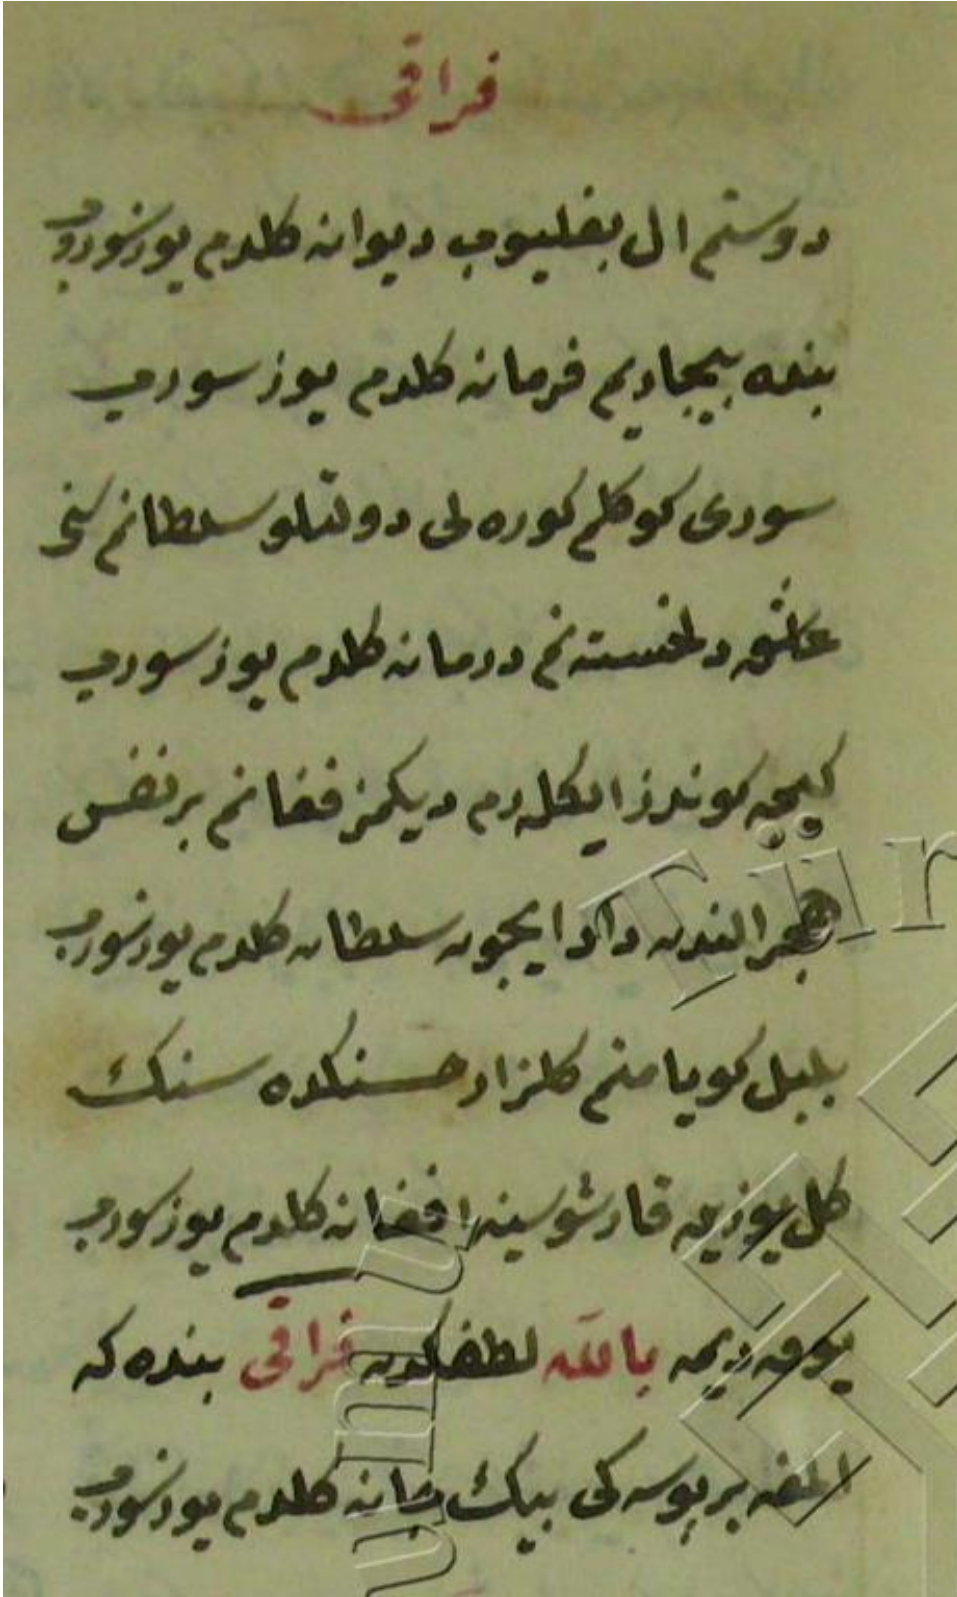 فراقی
دوستم ال بغلیوب دیوانه کلدم یوز سوروب
بنده بیچاریم فرمانه کلدم یوز سوروب
سودی کوکلم کوره لی دولتلو سلطانم سنی
عاشق دلخسته نم درمانه کلدم یوز سوروب
کیجه کوندز ایکلرم دیکمز فغانم بر نفس
هجر الندن داد ایچون سلطانه کلدم یوز سوروب
بلبل کویا منم کلزار حسنکده سنک
کل یوزیه قارشو سینه افغانه کلدم یوز سوروب
یوق دیمه بالله لطفکدن فراقی بنده که
المغه بر بوسه کی بیک جانه کلدم یوز سوروب